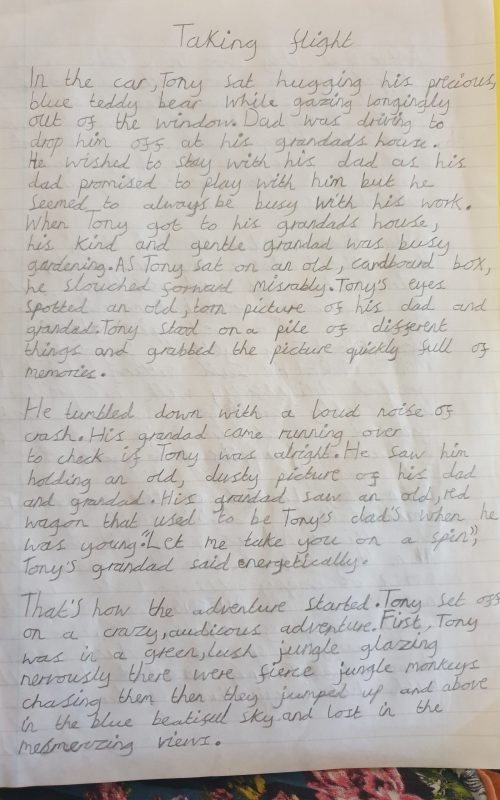 Taking flight
In the car, Tony sat hugging his precious,
blue teddy bear while gazing longingly
out of the window. Dad was driving to
drop him off at his grandads house.
He wished to stay with his dad as his
dad promised to play with him but he
seemed to always be busy with his work.
When Tony got to his grandads house,
his kind and gentle grandad was busy
gardening. As Tony sat on an old, cardboard box,
he slouched forward misrably. Tony's eyes
spotted an old, torn picture of his dad and
grandad. Tony stood on a pile of different
things and grabbed the picture quickly full of
memories.
He tumbled down with a loud noise of
crash. His grandad came running over
to check if Tony was alright. He saw him
holding an old, dusty picture of his dad
and grandad. His grandad saw an old, red
wagon that used to be Tony's dad's when he
was young. "Let me take you on a spin",
Tony's grandad said energetically.
That's how the adventure started. Tony set off
on a crazy, audicous adventure. First, Tony
was in a green, lush jungle glazing
nervously there were fierce jungle monkeys
chasing them then they jumped up and above
in the blue beatiful sky and lost in the
mesmerizing views.